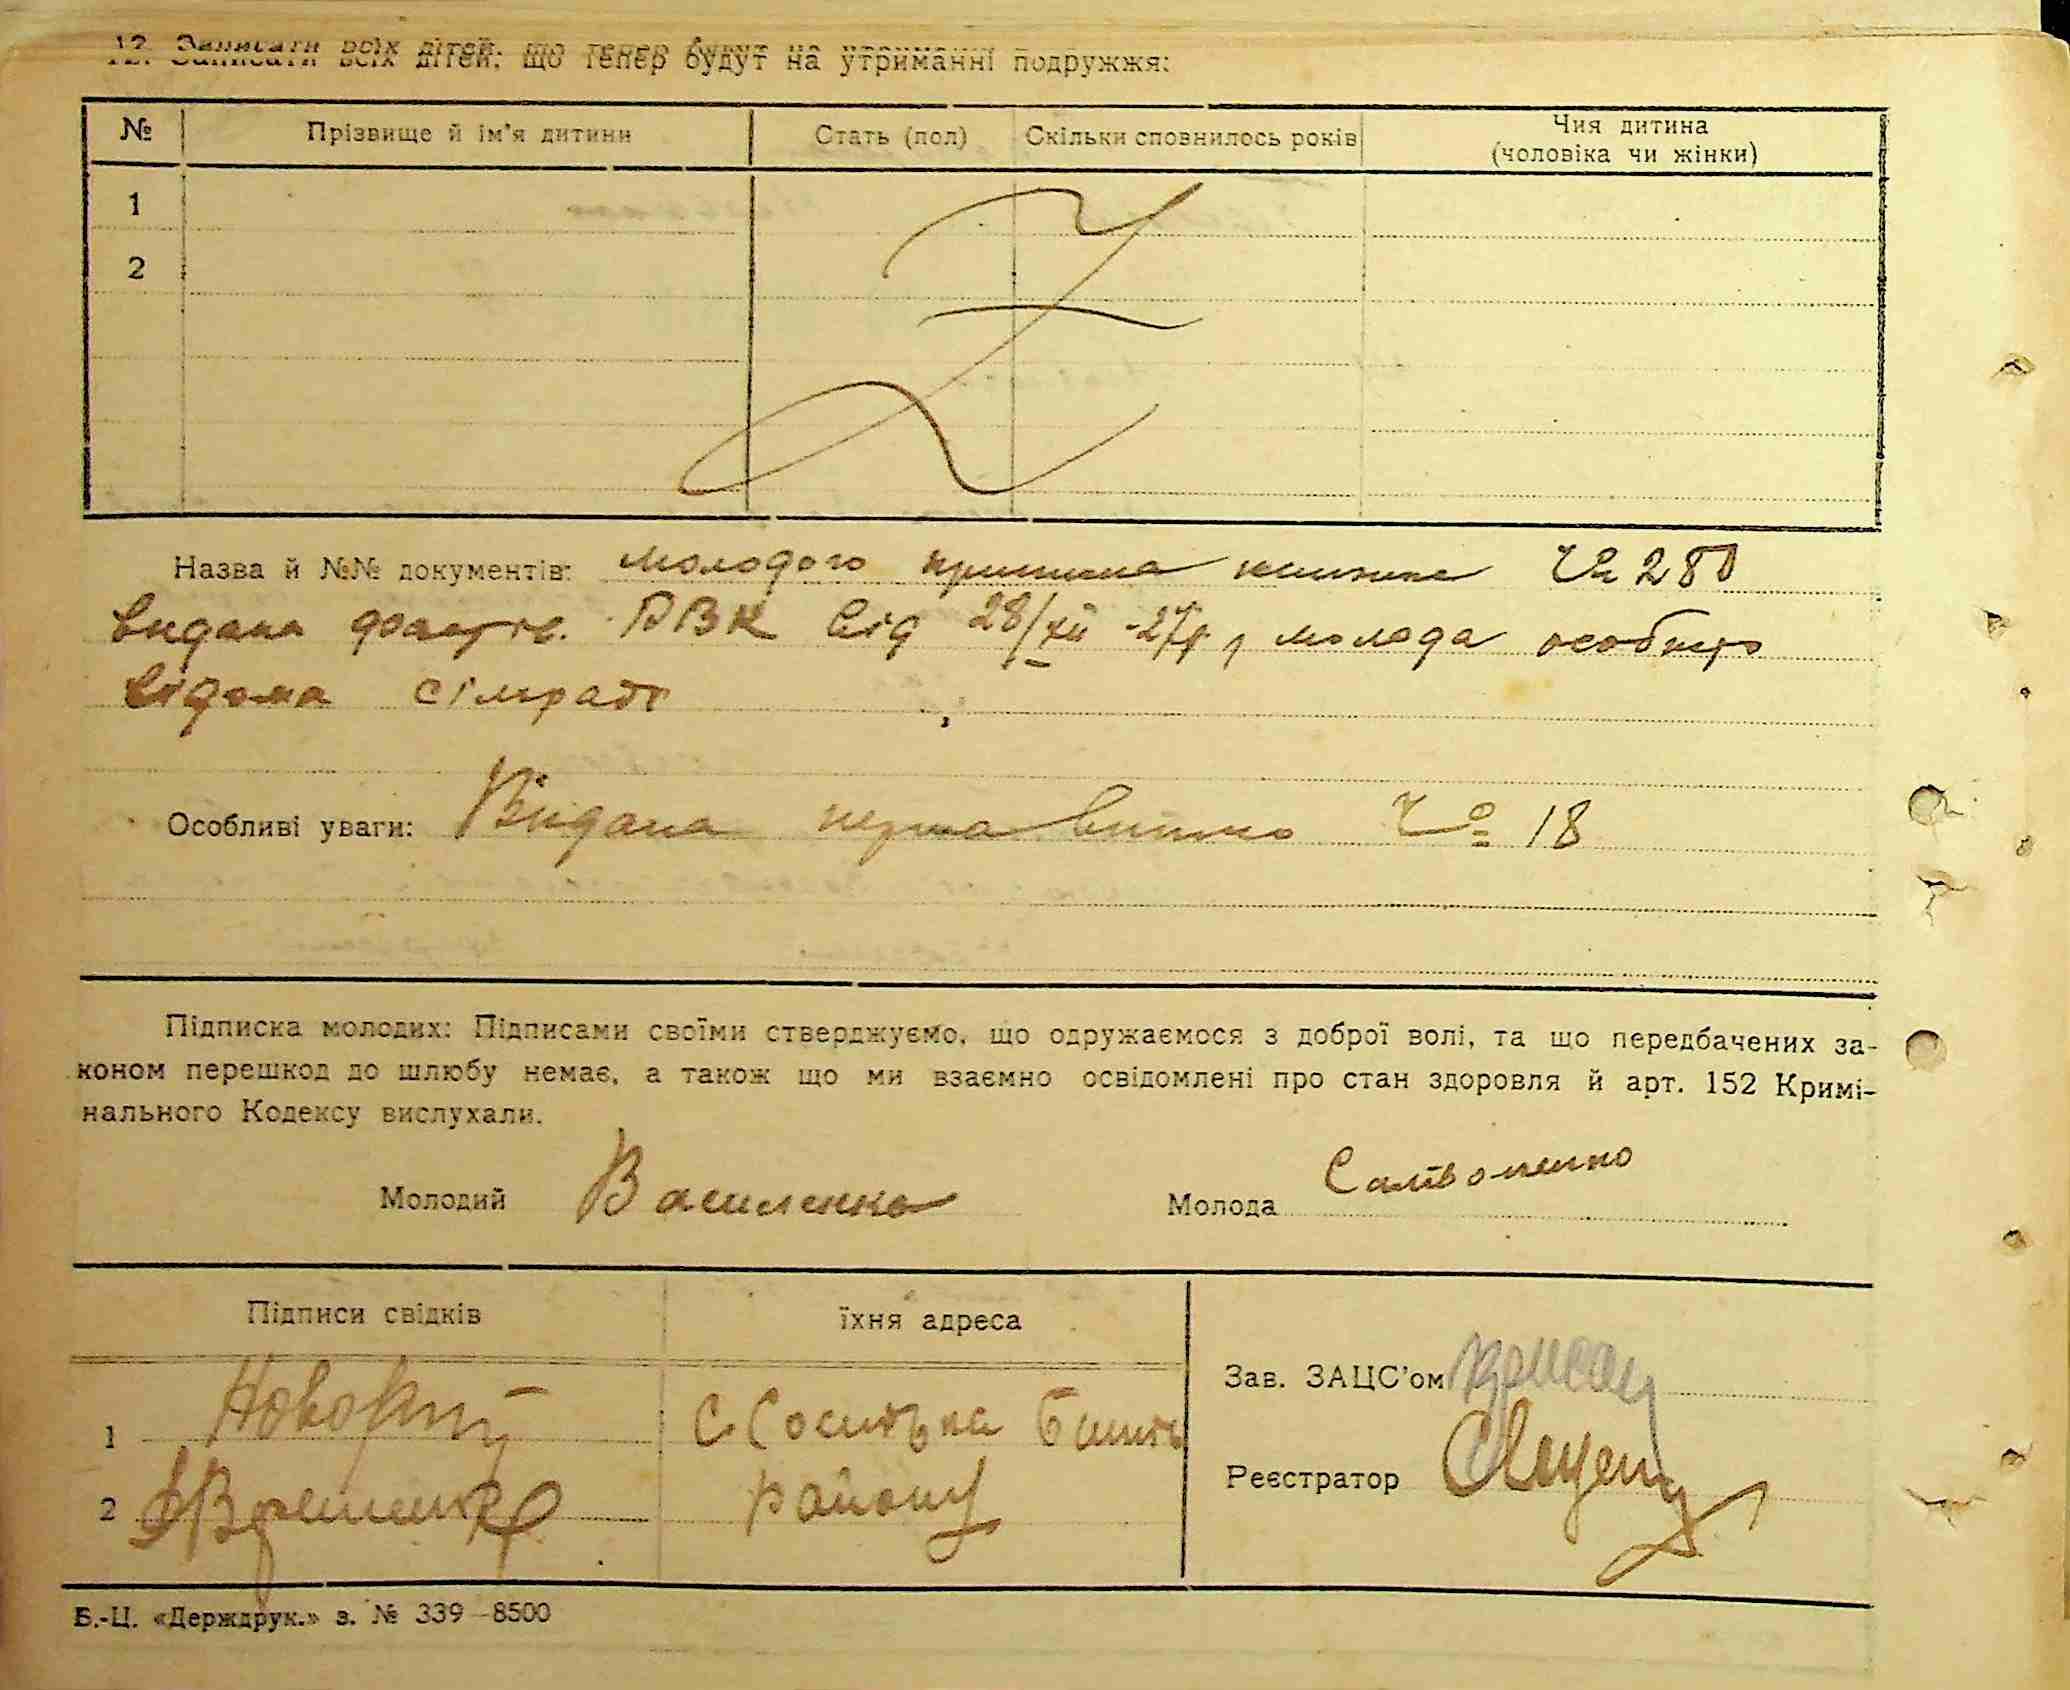 12. Записати всіх дітей, що тепер будут на утриманні подружжя:
№ Прізвище й ім'я дитини Стать (пол) Скільки сповнилось років Чия дитина
(чоловіка чи жінки)
1
2
Назва й №№ документів: молодого книжка № 280
видана РВК від 28/XII-27р, молода особисто
відома сільраді
Особливі уваги: Видана перша випис № 18
Підписка молодих: Підписами своїми стверджуємо, що одружаємося з доброї волі, та що передбачених за-
коном перешкод до шлюбу немає, а також що ми взаємно освідомлені про стан здоровля й арт. 152 Кримі-
нального Кодексу вислухали.
Молодий Василенко Молода
Підписи свідків їхня адреса
Зав. ЗАЦС'ом
1 С
Реєстратор
2 району
Б.-Ц. «Держдрук.» з. № 339—8500